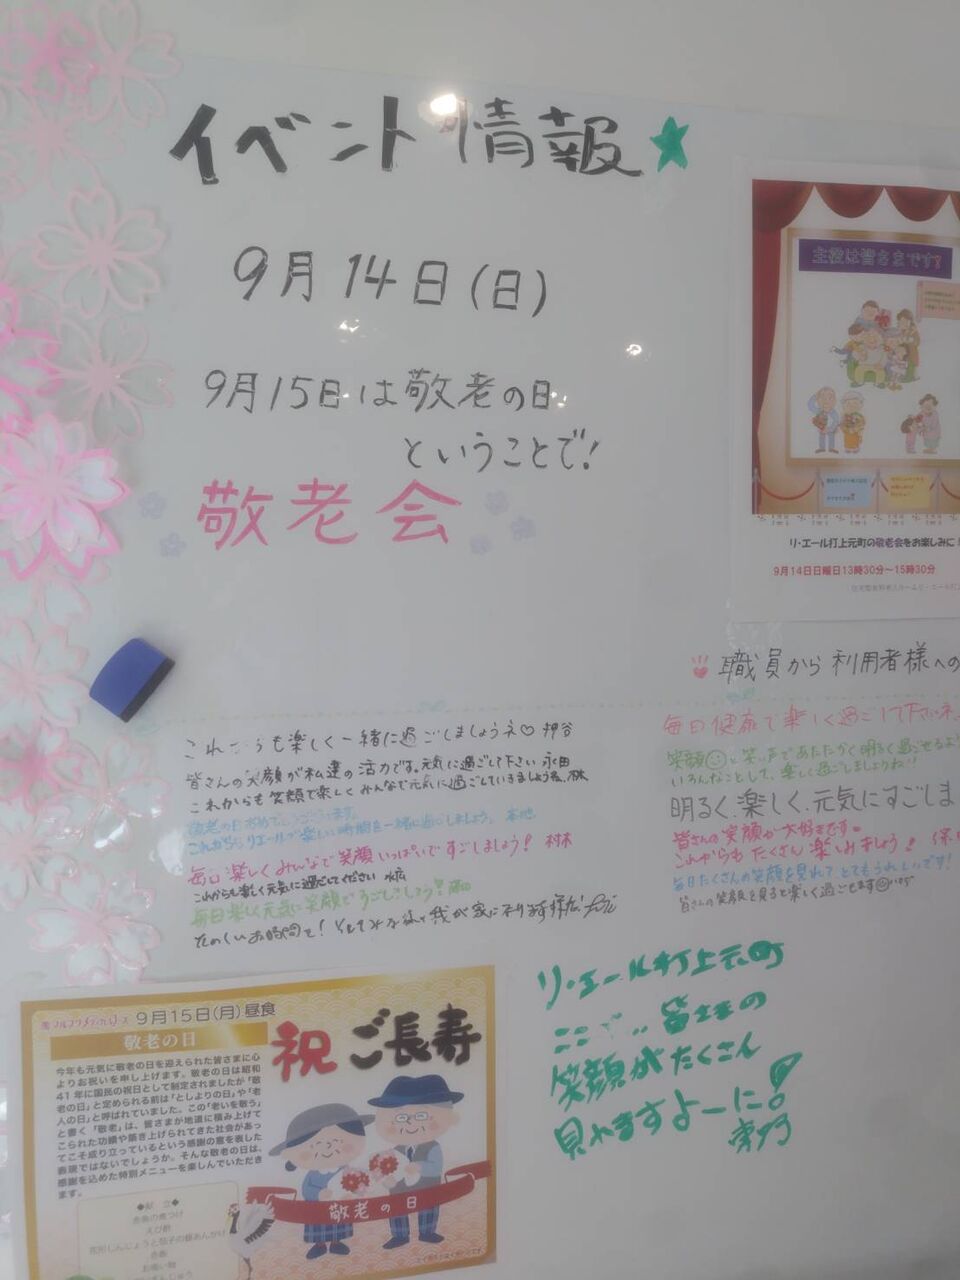 イベント情報★
9月14日(日)
9月15日は敬老の日
ということで!
敬老会
主役は皆さまです!
リ・エール打上元町の敬老会をお楽しみに!
9月14日日曜日13時30分～15時30分
職員から利用者様への
これからも楽しく一緒に過ごしましょうネ♡ 押谷
皆さんの笑顔が私達の活力です。元気に過ごして下さい 永田
これからも笑顔で楽しくみんなで元気に過ごしていきましょうね
敬老の日おめでとうございます。
これからもリエールで楽しい時間を一緒に過ごしましょう。
毎日楽しくみんなで笑顔いっぱいですごしましょう! 村木
これからも楽しく元気に過ごしてください
毎日楽しく元気に笑顔ですごしましょう!
たのしいお時間を!
毎日健康で楽しく過ごして下さいネ
笑顔☺と笑い声であたたかく明るく過ごせるよ
いろんなことして、楽しく過ごしましょうね!!
明るく、楽しく、元気にすごしま
皆さんの笑顔が大好きです。
これからもたくさん楽しみましょう!
毎日たくさんの笑顔を見れてとてもうれしいです!
皆さんの笑顔を見ると楽しく過ごせます☺
リ・エール打上元町
ここで... 皆さまの
笑顔がたくさん
見れますよーに!
9月15日(月)昼食
敬老の日
祝 ご長寿
今年も元気に敬老の日を迎えられた皆さまに心
よりお祝いを申し上げます。敬老の日は昭和
41年に国民の祝日として制定されましたが「敬
老の日」と定められる前は「としよりの日」や「老
人の日」と呼ばれていました。この「老いを敬う」
と書く「敬老」は、皆さまが地道に積み上げて
こられた功績や築き上げられてきた社会があっ
てこそ成り立っているという感謝の意を表した
表現ではないでしょうか。そんな敬老の日は、
感謝を込めた特別メニューを楽しんでいただき
ます。
◆献 立◆
赤魚の煮つけ
えび酢
花形しんじょうと茄子の銀あんかけ
赤飯
お吸い物
敬老の日